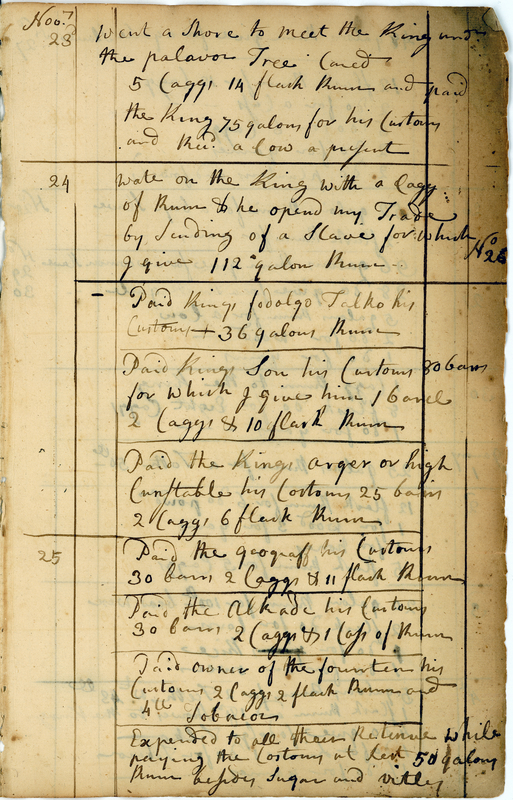 Nov.r
23 Went a Shore to meet the King und
the palavor Tree Caried
5 Caggs 14 flask Rum and paid
the King 75 galons for his Customs
and Recd. a Cow a present
24 wate on the King with a Cagg
of Rum & he opend my Trade
by Sending of a Slave for which No
I give 112 galon Rum 26
Paid Kings fodolgo Talko his
Customs 36 galons Rum
Paid Kings Son his Customs 30 bars
for which I give him 1 barel
2 Caggs & 10 flask Rum
Paid the Kings arger or high
Cunstable his Costoms 25 bars
2 Caggs 6 flask Rum
25 Paid the geograff his Customs
30 bars 2 Caggs & 11 flask Rum
Paid the Alkade his Customs
30 bars 2 Caggs & 1 Cass of Rum
Paid owner of the founten his
Customs 2 Caggs 2 flask Rum and
4lb Tobacor
Expended to all theer Retinue while
paying the Costoms at lest 50 galons
Rum besides Sugar and vitles